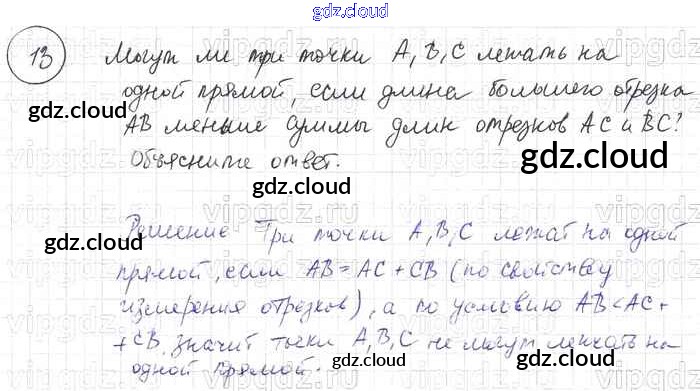 gdz.cloud
13 Могут ли три точки A, B, C лежать на
одной прямой, если длина большего отрезка
AB меньше суммы длин отрезков AC и BC?
Объясните ответ.
gdz.cloud
gdz.cloud
gdz.cloud
gdz.cloud
Решение Три точки A, B, C лежат на одной
прямой, если AB = AC + CB (по свойству
измерения отрезков), а по условию AB < AC +
+ CB, значит точки A, B, C не могут лежать на
одной прямой.
gdz.cloud
gdz.cloud
gdz.cloud
gdz.cloud